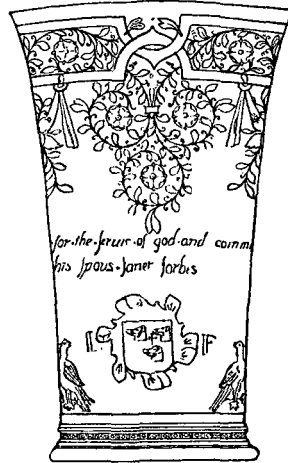 for·the·seruic·of god·and comm
his spous·Janet forbes
IL IF